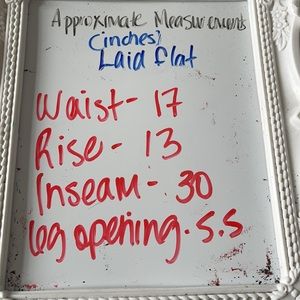 Approximate Measurements
(inches)
Laid flat
Waist- 17
Rise- 13
Inseam- 30
leg opening- 5.5